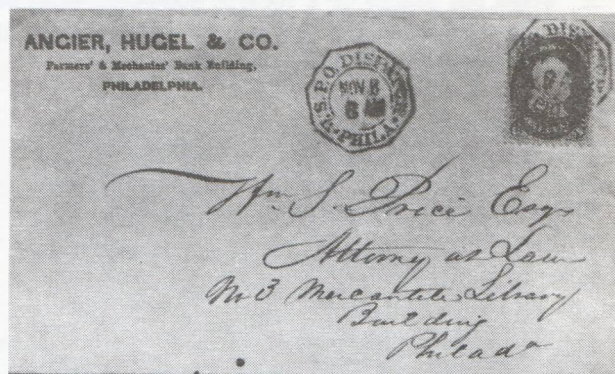 ANGIER, HUGEL & CO.
Farmers' & Mechanics' Bank Building,
PHILADELPHIA.
U.S.P.O. DISPATCH
NOV 8
6 AM
PHILA
Wm. S. Price Esq
Attorney at Law
No 3 Mercantile Library
Building
Philada